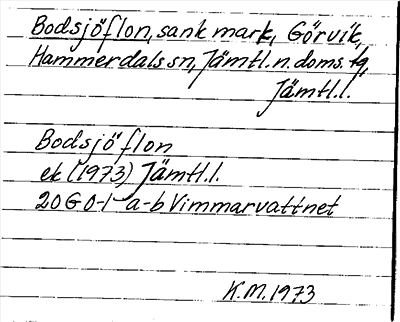 Bodsjöflon, sank mark, Görvik,
Hammerdals sn, Jämtl. n. doms. tg,
Jämtl. l.
Bodsjöflon
ek (1973) Jämtl. l.
20G 0-1 a-b Vimmarvattnet
K.M. 1973